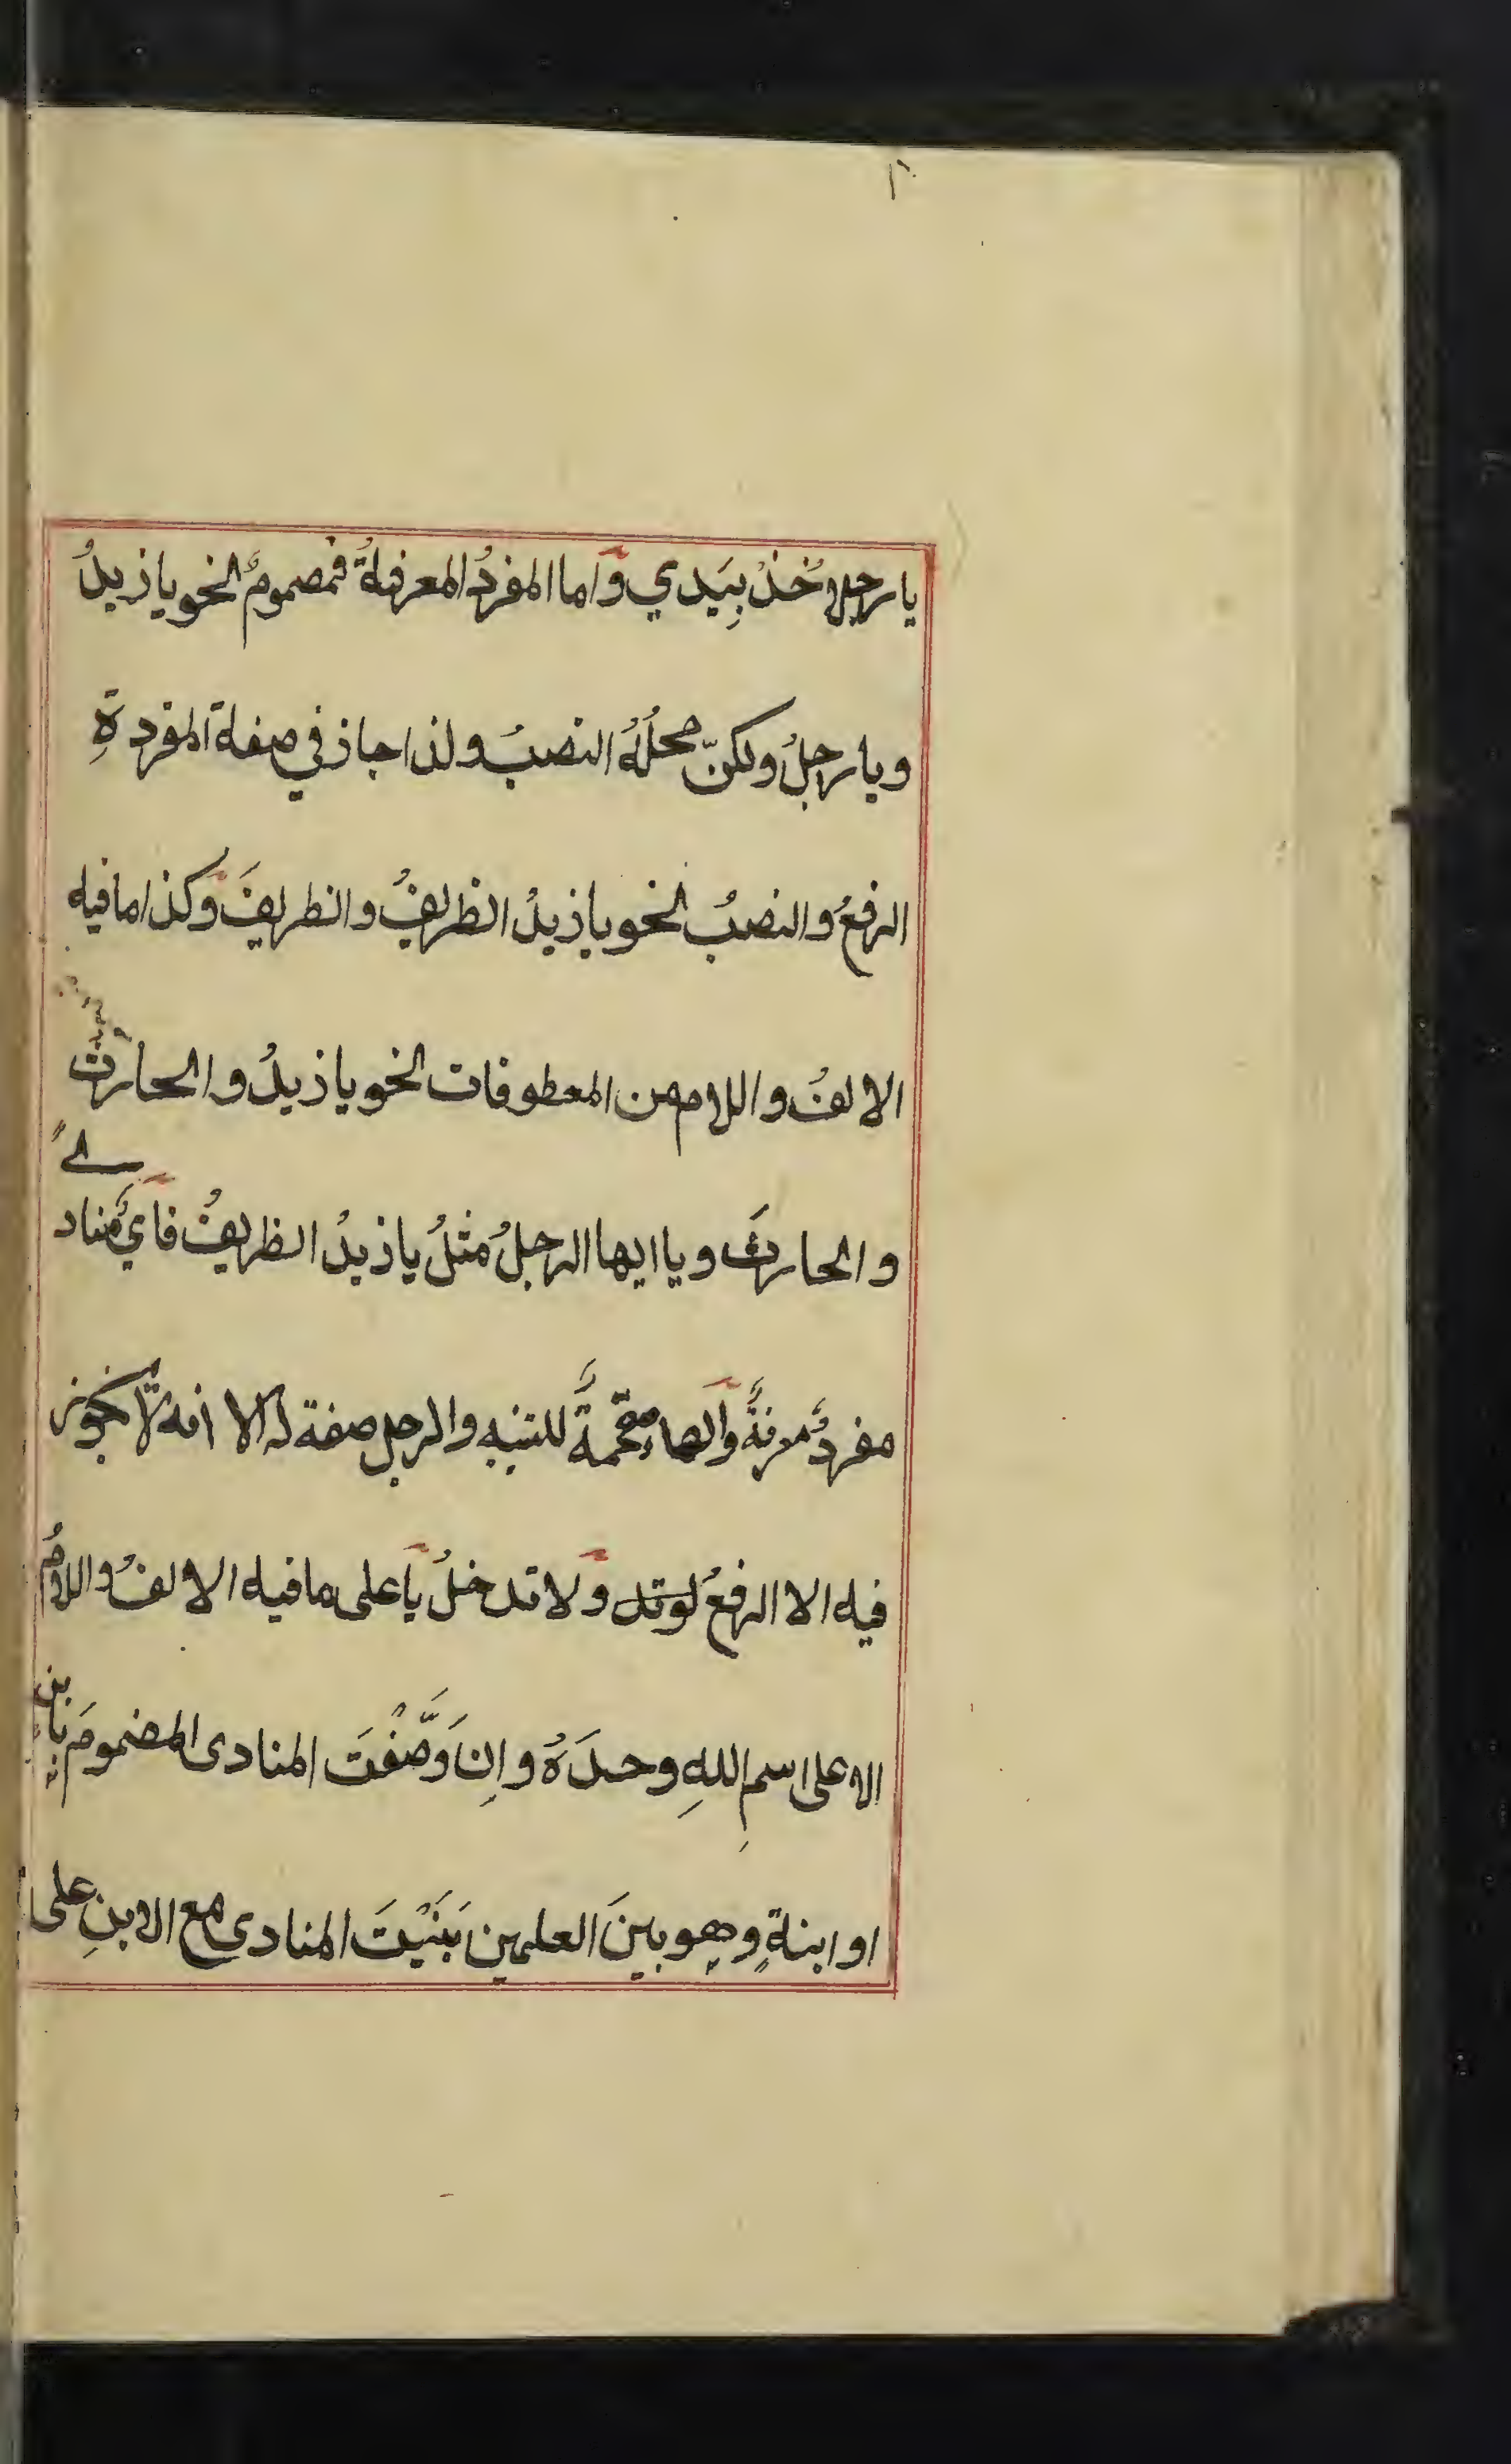 يا رجلا خذْ بِيَدي وَاما المفردُ المعرفةُ فمضمومٌ نحو يا زيدُ
ويا رجلُ ولكنّ محلُّهُ النصبُ ولذا جاز في صفة المفردةِ
الرفعُ والنصبُ نحو يا زيدُ الظريفُ والظريفَ وكذا ما فيه
الالفُ واللام من المعطوفات نحو يا زيدُ والحارثُ
والحارثَ ويا ايها الرجلُ مثلُ يا زيدُ الظريفُ فايُّ منادى
مفردٌ معرفةٌ والهاء مقحمةٌ للتنبيه والرجل صفة له الا انه لا يجوز
فيه الا الرفعُ ولا تدخلُ يا على ما فيه الالفُ واللامُ
الا على اسمِ اللهِ وحدَهُ وإِن وَصَّفْتَ المنادى المضمومَ بابن
او ابنةٍ وهو بينَ العلمين بَنَيْتَ المنادى مع الابنِ على